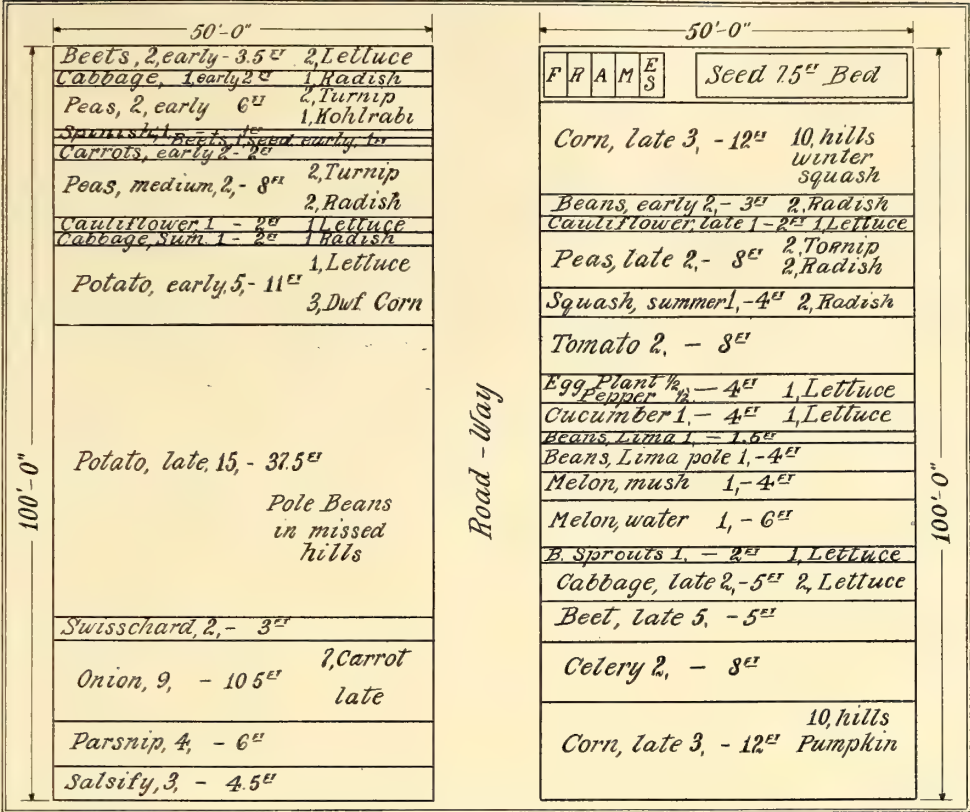 50'-0"
Beets, 2, early - 3.5 FT 2, Lettuce
Cabbage, 1, early 2 FT 1, Radish
Peas, 2, early 6 FT 2, Turnip
1, Kohlrabi
Spinish 1 - 1 FT
Beets, 1, seed early, 1 FT
Carrots, early 2 - 2 FT
Peas, medium, 2, - 8 FT 2, Turnip
2, Radish
Cauliflower 1 - 2 FT 1 Lettuce
Cabbage, Sum. 1 - 2 FT 1 Radish
Potato, early, 5, - 11 FT 1, Lettuce
3, Dwf. Corn
Potato, late, 15, - 37.5 FT
Pole Beans
in missed
hills
Swisschard, 2, - 3 FT
Onion, 9, - 10 5 FT 7, Carrot
late
Parsnip, 4, - 6 FT
Salsify, 3, - 4.5 FT
100'-0"
Road - Way
50'-0"
FRAMES
Seed 7.5 FT Bed
Corn, late 3, - 12 FT 10, hills
winter
squash
Beans, early 2, - 3 FT 2, Radish
Cauliflower, late 1 - 2 FT 1, Lettuce
Peas, late 2, - 8 FT 2, Tornip
2, Radish
Squash, summer 1, - 4 FT 2, Radish
Tomato 2, - 8 FT
Egg Plant 1/2, - 4 FT 1, Lettuce
Pepper 1/2
Cucumber 1, - 4 FT 1, Lettuce
Beans, Lima 1, - 1.5 FT
Beans, Lima pole 1, - 4 FT
Melon, mush 1, - 4 FT
Melon, water 1, - 6 FT
B. Sprouts 1, - 2 FT 1, Lettuce
Cabbage, late 2, - 5 FT 2, Lettuce
Beet, late 5, - 5 FT
Celery 2, - 8 FT
Corn, late 3, - 12 FT 10, hills
Pumpkin
100'-0"